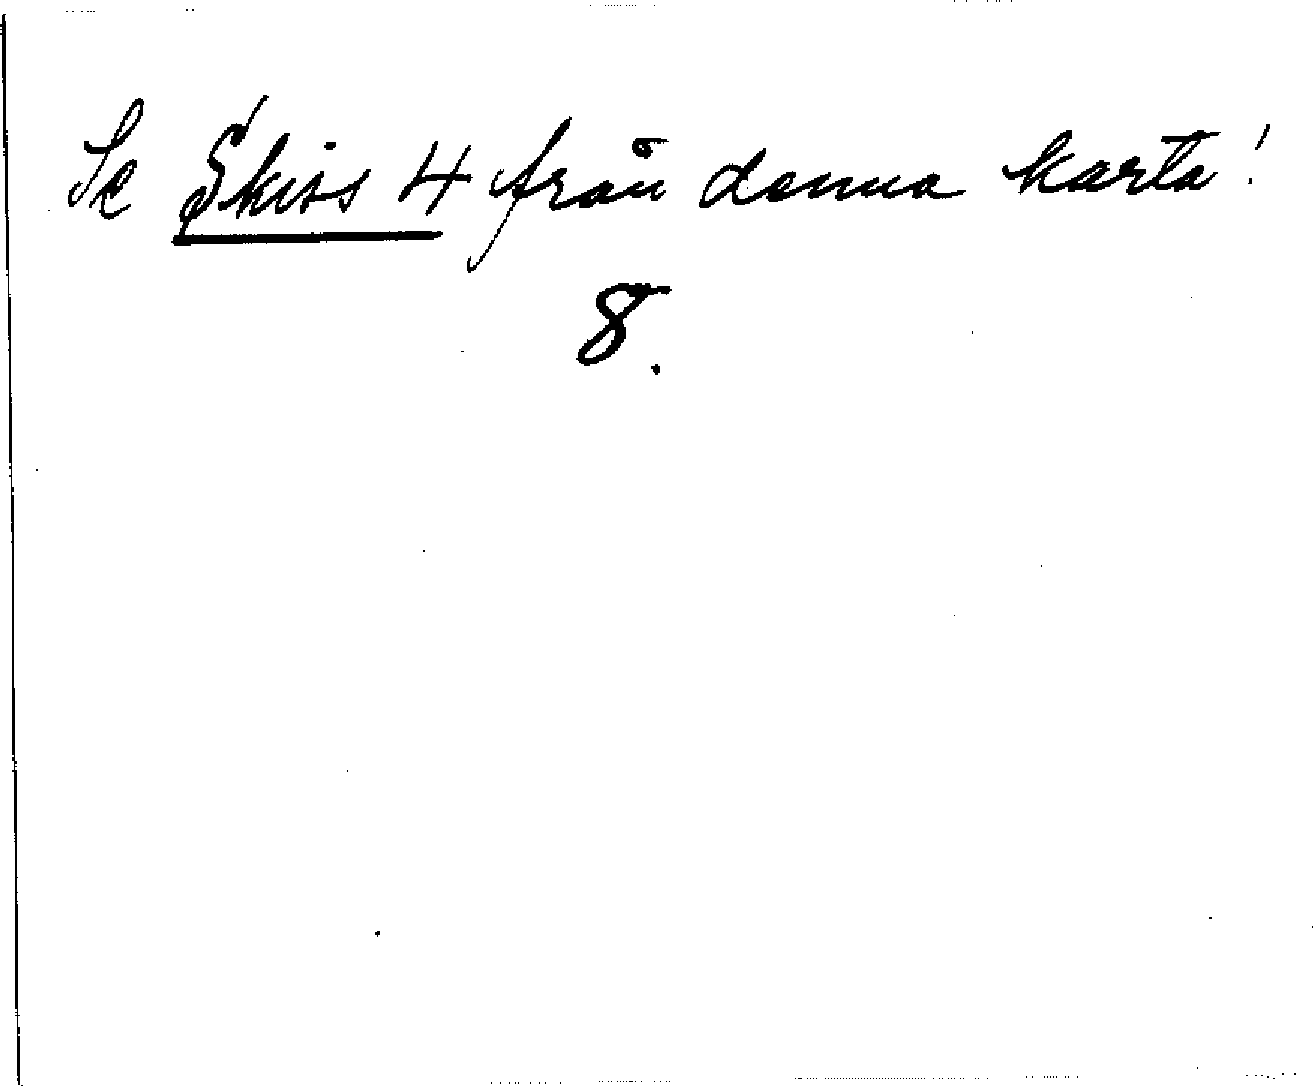 Se Skiss 4 från denna karta!
8.